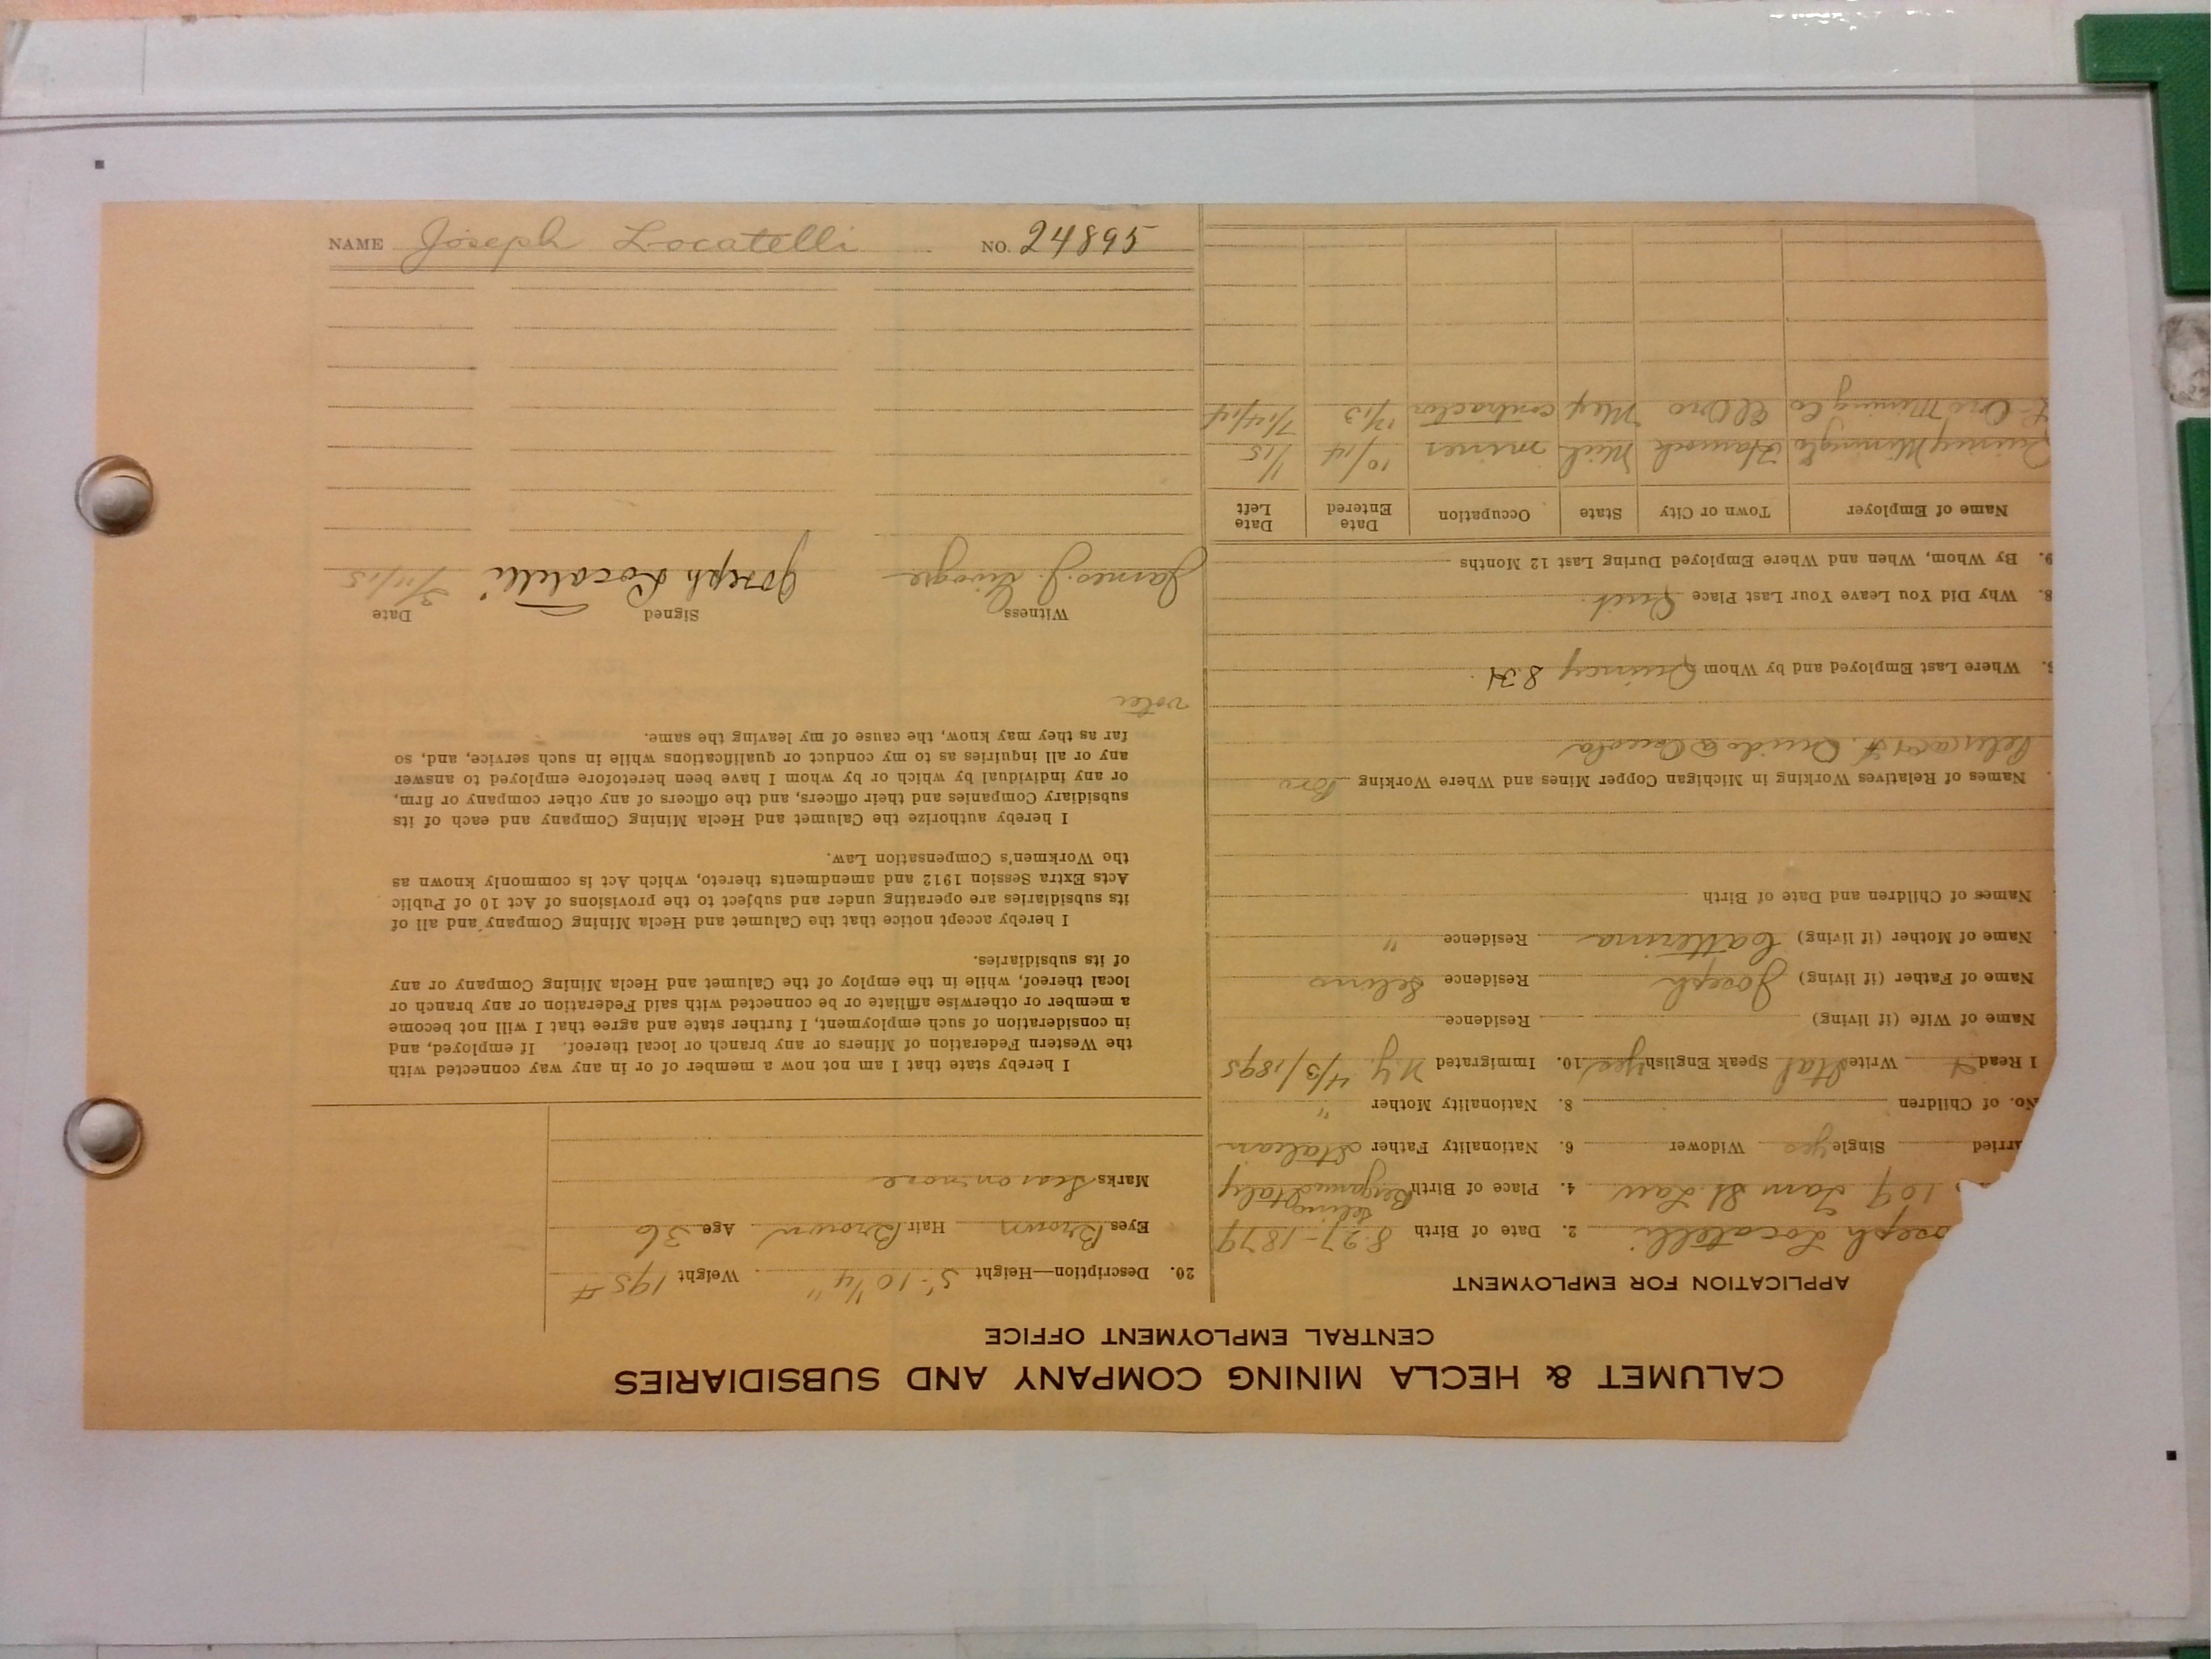 NAME Joseph Locatelli NO. 24895
CALUMET & HECLA MINING COMPANY AND SUBSIDIARIES
CENTRAL EMPLOYMENT OFFICE
APPLICATION FOR EMPLOYMENT
oseph Locatelli 2. Date of Birth 8-27-1879
109 St. Law 4. Place of Birth Bergamo Italy
arried Single yes Widower 6. Nationality Father Italian
No. of Children 8. Nationality Mother "
I Read Write Ital Speak English yes 10. Immigrated N.Y. 4/3/1895
Name of Wife (if living) Residence
Name of Father (if living) Joseph Residence Selino
Name of Mother (if living) Catterina Residence "
Names of Children and Date of Birth
Names of Relatives Working in Michigan Copper Mines and Where Working
Where Last Employed and by Whom Quincy 834
8. Why Did You Leave Your Last Place Quit.
9. By Whom, When and Where Employed During Last 12 Months
Name of Employer Town or City State Occupation Date Entered Date Left
Quincy Mining Co Hancock Mich miner 10/14 1/15
Oro Mining Co El Oro Mex contractor 12/13 7/14/14
20. Description—Height 5'-10 1/4" Weight 195 #
Eyes Brown Hair Brown Age 36
Marks Scar on nose
I hereby state that I am not now a member of or in any way connected with
the Western Federation of Miners or any branch or local thereof. If employed, and
in consideration of such employment, I further state and agree that I will not become
a member or otherwise affiliate or be connected with said Federation or any branch or
local thereof, while in the employ of the Calumet and Hecla Mining Company or any
of its subsidiaries.
I hereby accept notice that the Calumet and Hecla Mining Company and all of
its subsidiaries are operating under and subject to the provisions of Act 10 of Public
Acts Extra Session 1912 and amendments thereto, which Act is commonly known as
the Workmen's Compensation Law.
I hereby authorize the Calumet and Hecla Mining Company and each of its
subsidiary Companies and their officers, and the officers of any other company or firm,
or any individual by which or by whom I have been heretofore employed to answer
any or all inquiries as to my conduct or qualifications while in such service, and, so
far as they may know, the cause of my leaving the same.
Witness Signed Date
James J. Joseph Locatelli 3/11/15